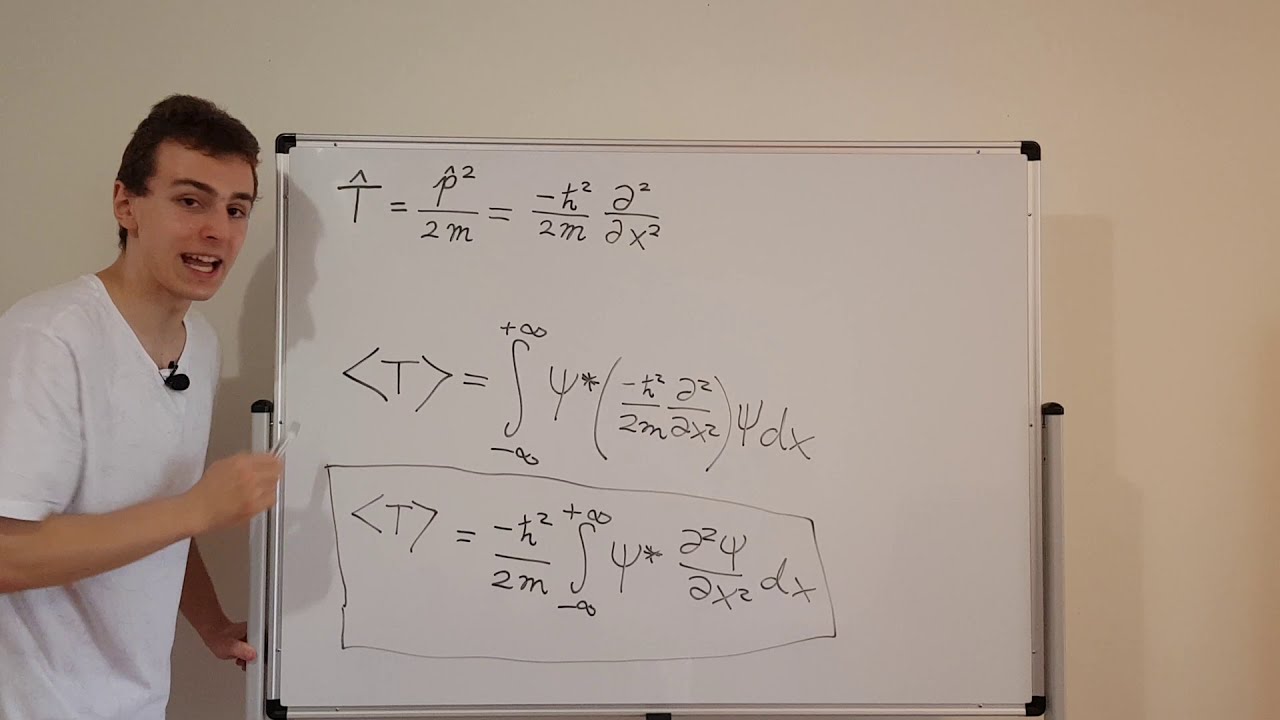 T̂ = p̂²/2m = -ħ²/2m ∂²/∂x²
<T> = ∫₋∞⁺∞ ψ* (-ħ²/2m ∂²/∂x²) ψ dx
<T> = -ħ²/2m ∫₋∞⁺∞ ψ* ∂²ψ/∂x² dx